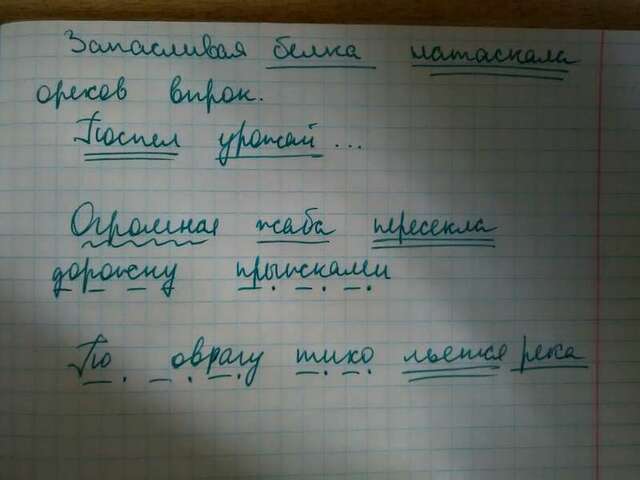 Запасливая белка натаскала
орехов впрок.
Поспел урожай...
Огромная жаба пересекла
дорожку прыжками
По оврагу тихо льётся река